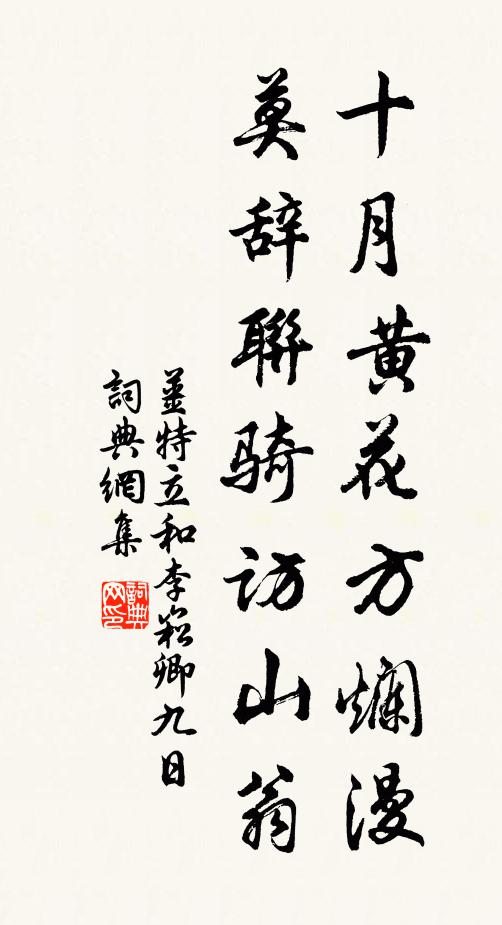 十月黄花方爛漫
莫辞聯骑访山翁
姜特立和李崧卿九日
詞典網集
詞典网印